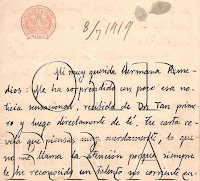 8/7 1919
Mi muy querida Hermana Reme-
dios: Me ha sorprendido un poco esa no-
ticia sensacional, recibida de Don Tan prime-
ro y luego directamente de ti, tu carta re-
vela que piensas muy cuerdamente, lo que
no me llama la atención porque siempre
te he reconocido un talento nos corriente en